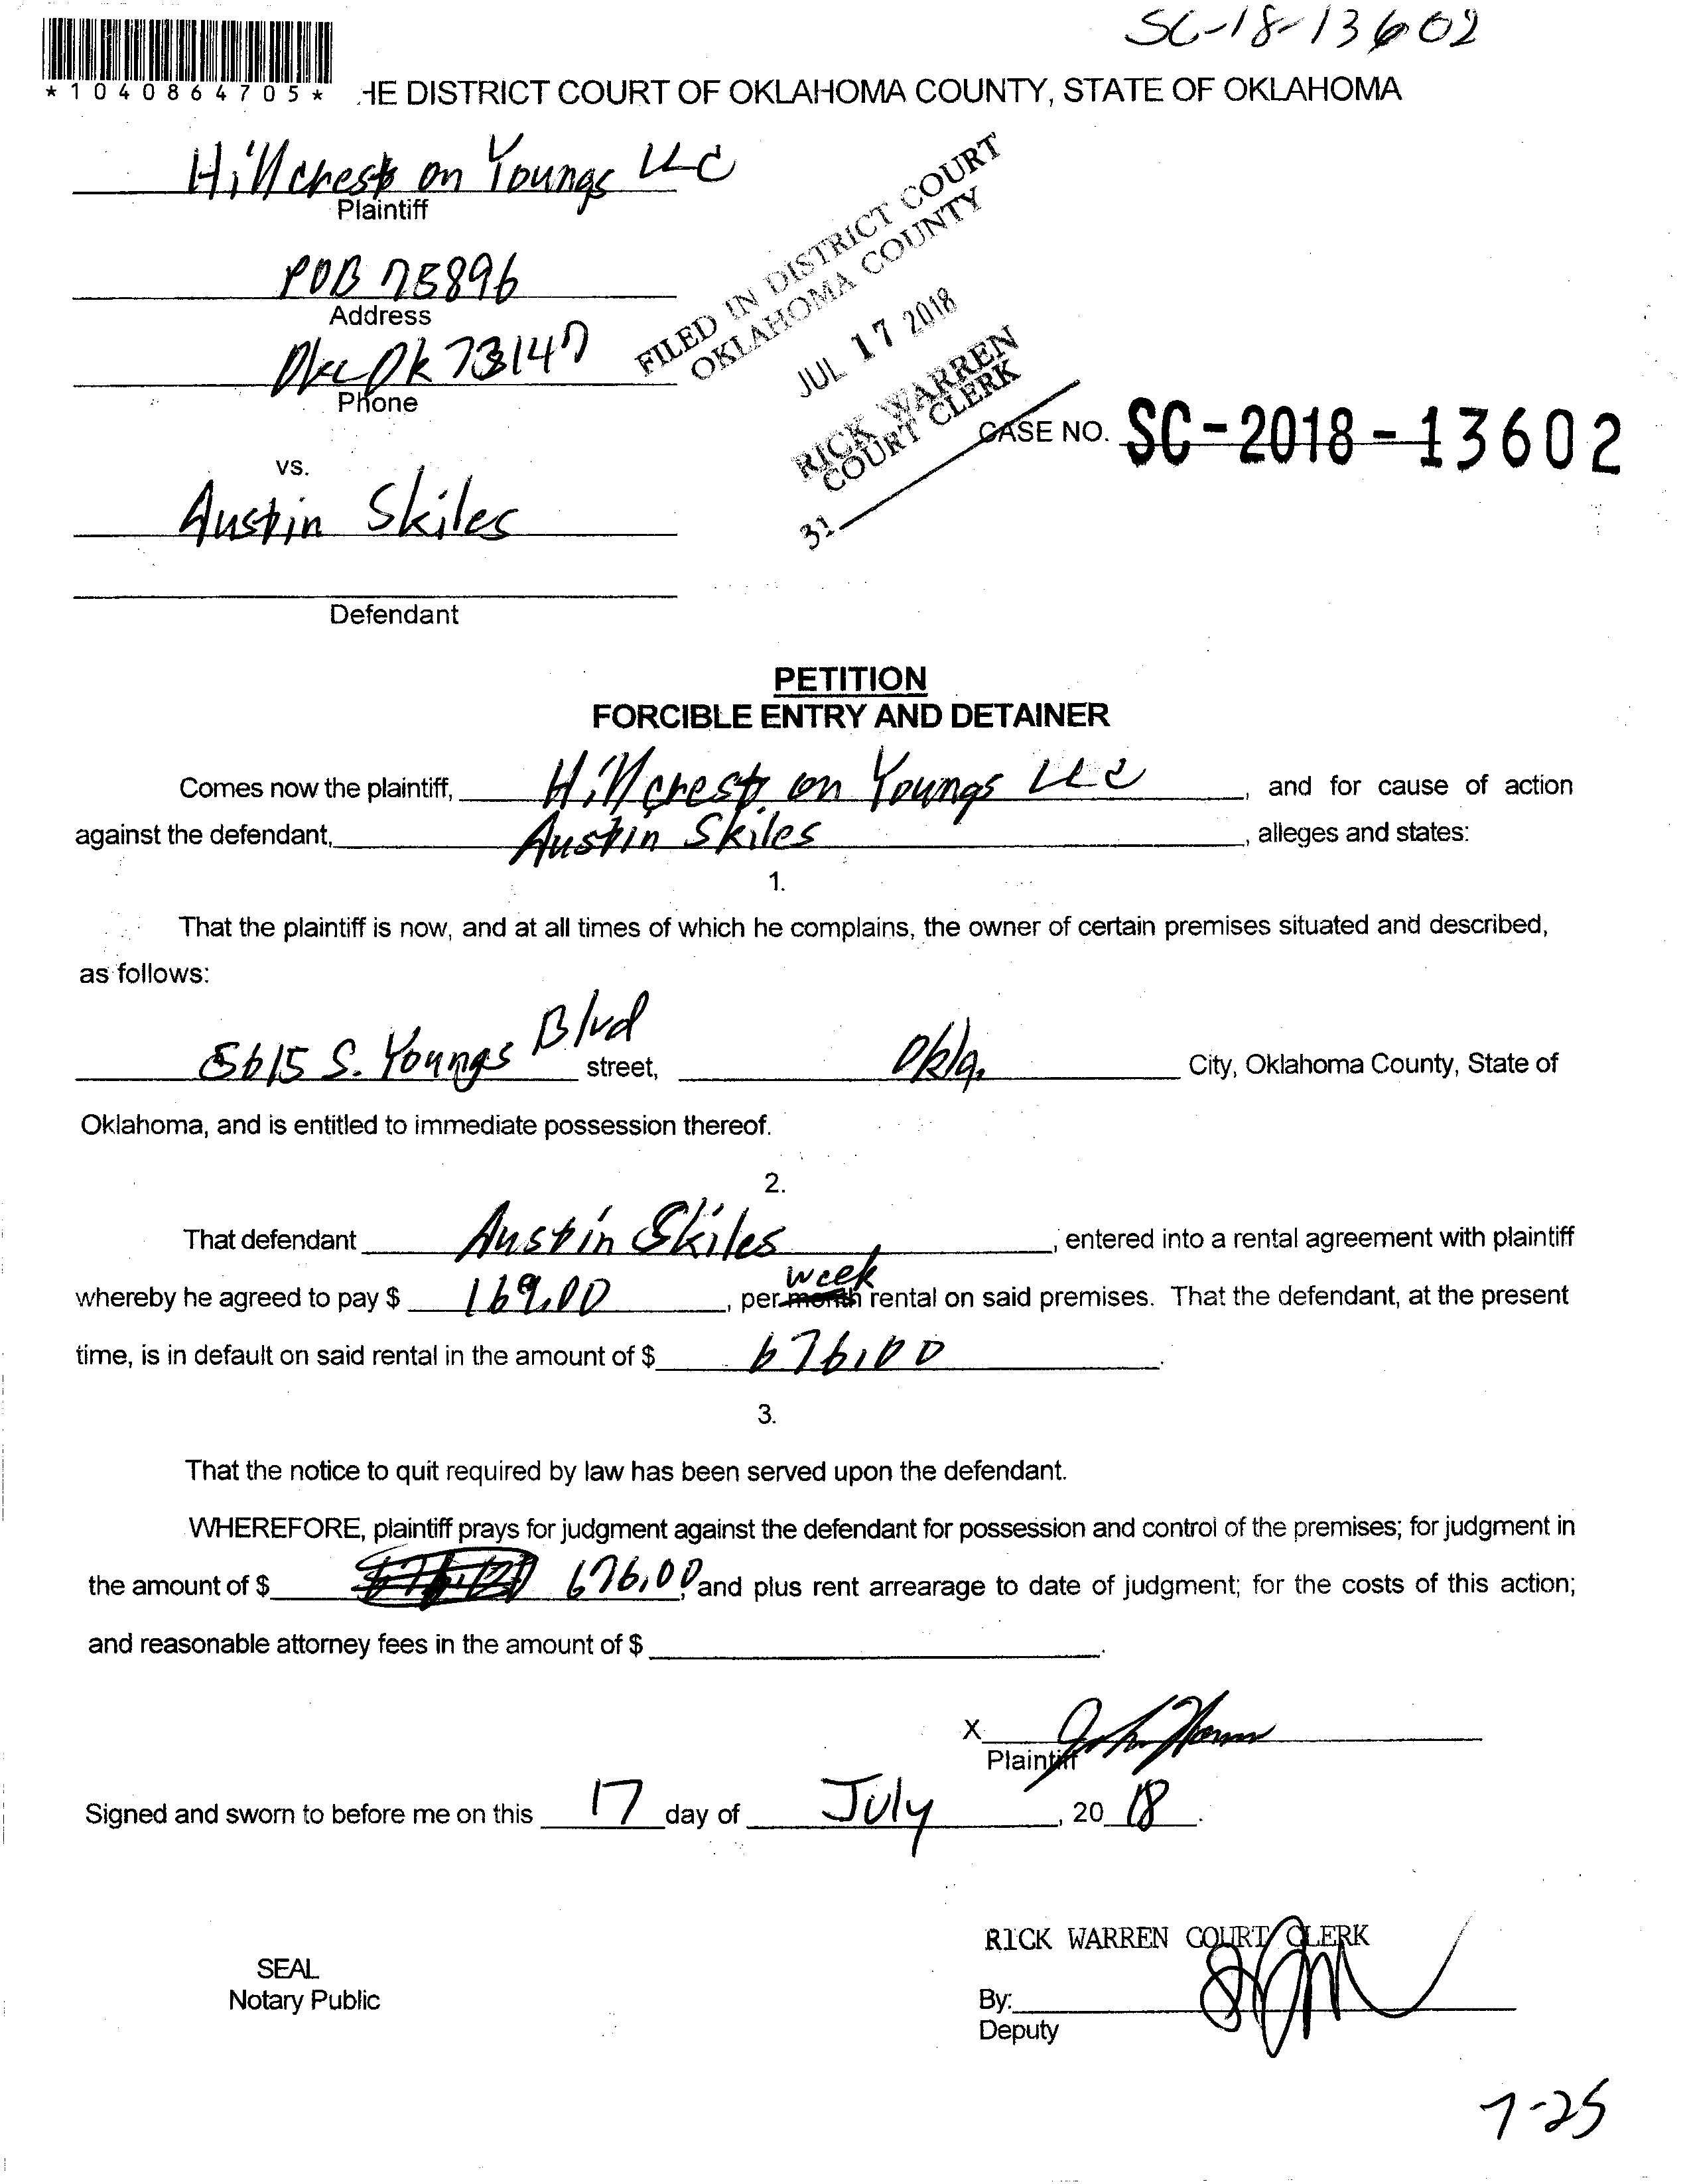 SC-18-13602
*1040864705*
HE DISTRICT COURT OF OKLAHOMA COUNTY, STATE OF OKLAHOMA
Hillcrest on Youngs LLC
Plaintiff
POB 75896
Address
Okc Ok 73147
Phone
FILED IN DISTRICT COURT
OKLAHOMA COUNTY
JUL 17 2018
RICK WARREN
COURT CLERK
31
CASE NO. SC-2018-13602
vs.
Austin Skiles
Defendant
PETITION
FORCIBLE ENTRY AND DETAINER
Comes now the plaintiff, Hillcrest on Youngs LLC, and for cause of action
against the defendant, Austin Skiles, alleges and states:
1.
That the plaintiff is now, and at all times of which he complains, the owner of certain premises situated and described,
as follows:
5615 S. Youngs Blvd street, Okla. City, Oklahoma County, State of
Oklahoma, and is entitled to immediate possession thereof.
2.
That defendant Austin Skiles, entered into a rental agreement with plaintiff
whereby he agreed to pay $ 169.00, per month week rental on said premises. That the defendant, at the present
time, is in default on said rental in the amount of $ 676.00.
3.
That the notice to quit required by law has been served upon the defendant.
WHEREFORE, plaintiff prays for judgment against the defendant for possession and control of the premises; for judgment in
the amount of $ 676.00, and plus rent arrearage to date of judgment; for the costs of this action;
and reasonable attorney fees in the amount of $.
X
Plaintiff
Signed and sworn to before me on this 17 day of July, 20 18.
RICK WARREN COURT CLERK
SEAL
Notary Public
By:
Deputy
7-25